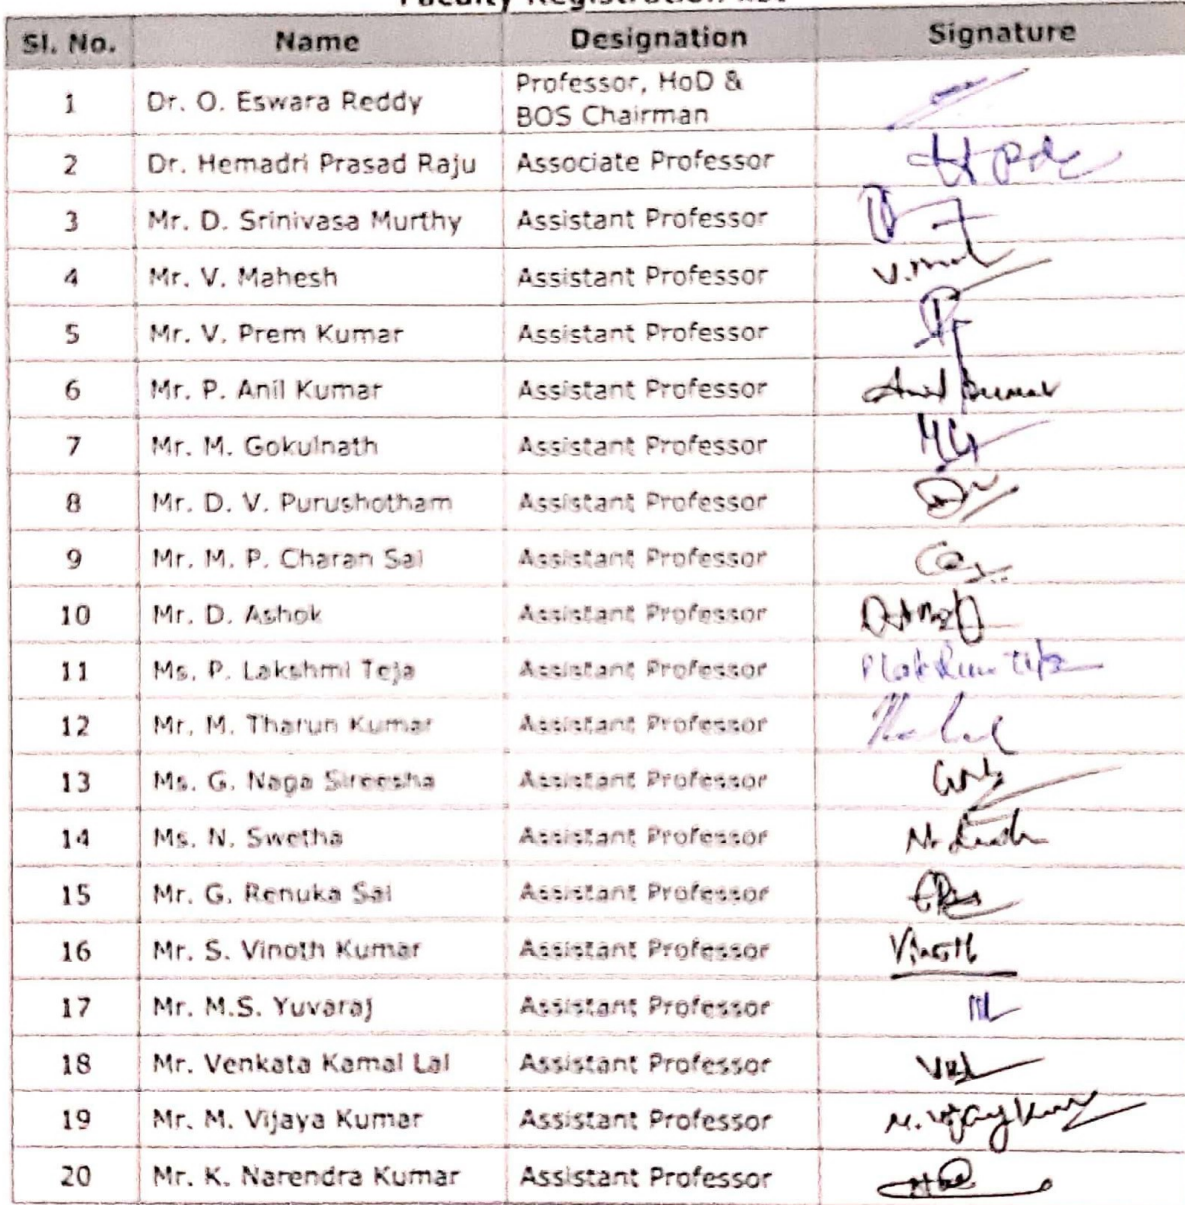 Faculty Registration list
Sl. No. Name Designation Signature
1 Dr. O. Eswara Reddy Professor, HoD &
BOS Chairman
2 Dr. Hemadri Prasad Raju Associate Professor
3 Mr. D. Srinivasa Murthy Assistant Professor
4 Mr. V. Mahesh Assistant Professor
5 Mr. V. Prem Kumar Assistant Professor
6 Mr. P. Anil Kumar Assistant Professor Anil Kumar
7 Mr. M. Gokulnath Assistant Professor
8 Mr. D. V. Purushotham Assistant Professor
9 Mr. M. P. Charan Sai Assistant Professor
10 Mr. D. Ashok Assistant Professor
11 Ms. P. Lakshmi Teja Assistant Professor
12 Mr. M. Tharun Kumar Assistant Professor
13 Ms. G. Naga Sireesha Assistant Professor
14 Ms. N. Swetha Assistant Professor
15 Mr. G. Renuka Sai Assistant Professor
16 Mr. S. Vinoth Kumar Assistant Professor Vinoth
17 Mr. M.S. Yuvaraj Assistant Professor
18 Mr. Venkata Kamal Lal Assistant Professor
19 Mr. M. Vijaya Kumar Assistant Professor M. Vijay Kumar
20 Mr. K. Narendra Kumar Assistant Professor